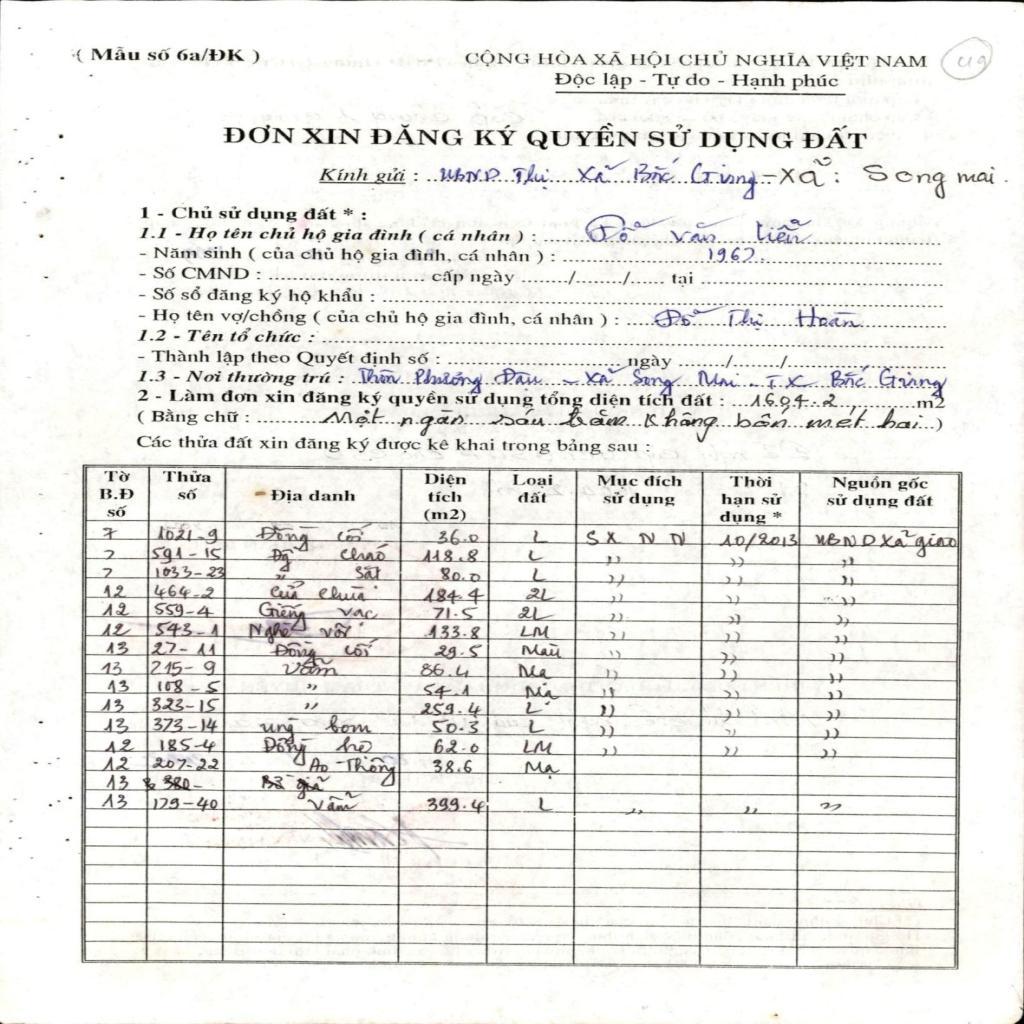 ( Mẫu số 6a/ĐK )
CỘNG HÒA XÃ HỘI CHỦ NGHĨA VIỆT NAM
49
Độc lập - Tự do - Hạnh phúc
ĐƠN XIN ĐĂNG KÝ QUYỀN SỬ DỤNG ĐẤT
Kính gửi : UBND Thị Xã Bắc Giang - Xã : Song mai.
1 - Chủ sử dụng đất * :
1.1 - Họ tên chủ hộ gia đình ( cá nhân ) : Đỗ văn
- Năm sinh ( của chủ hộ gia đình, cá nhân ) : 1967.
- Số CMND : cấp ngày / / tại
- Số sổ đăng ký hộ khẩu :
- Họ tên vợ/chồng ( của chủ hộ gia đình, cá nhân ) : Đỗ Thị Hoàn
1.2 - Tên tổ chức :
- Thành lập theo Quyết định số : ngày / /
1.3 - Nơi thường trú : Thôn Phương Đậu - Xã Song Mai - TX Bắc Giang
2 - Làm đơn xin đăng ký quyền sử dụng tổng diện tích đất : 1604.2 m2
( Bằng chữ : Một ngàn sáu trăm không bốn mét hai )
Các thửa đất xin đăng ký được kê khai trong bảng sau :
Tờ B.Đ số | Thửa số | Địa danh | Diện tích (m2) | Loại đất | Mục đích sử dụng | Thời hạn sử dụng * | Nguồn gốc sử dụng đất
7 1021-9 Đồng cối 36.0 L SX NN 10/2013 UBND Xã giao
7 591-15 chaó 118.8 L ,, ,, ,,
7 1033-23 ,, Sắt 80.0 L ,, ,, ,,
12 464-2 Cửa chùa 184.4 2L ,, ,, ,,
12 559-4 Giếng vạc 71.5 2L ,, ,, ,,
12 543-1 Nghè vôi 133.8 LM ,, ,, ,,
13 27-11 Đồng cối 29.5 Màu ,, ,, ,,
13 215-9 Vẫm 86.4 Mạ ,, ,, ,,
13 108-5 ,, 54.1 Mạ ,, ,, ,,
13 323-15 ,, 259.4 L ,, ,, ,,
13 373-14 ưng bom 50.3 L ,, ,, ,,
12 185-4 Đồng hồ 62.0 LM ,, ,, ,,
12 207-22 Ao Thông 38.6 Mạ
13 380-
13 179-40 Vẫm 399.4 L ,, ,, ,,